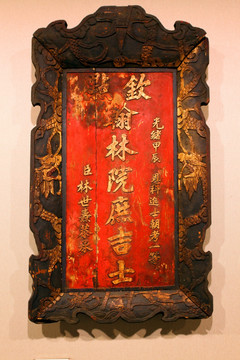 欽點
光緒甲辰恩科進士朝考一等
翰林院庶吉士
臣林世燾恭錄